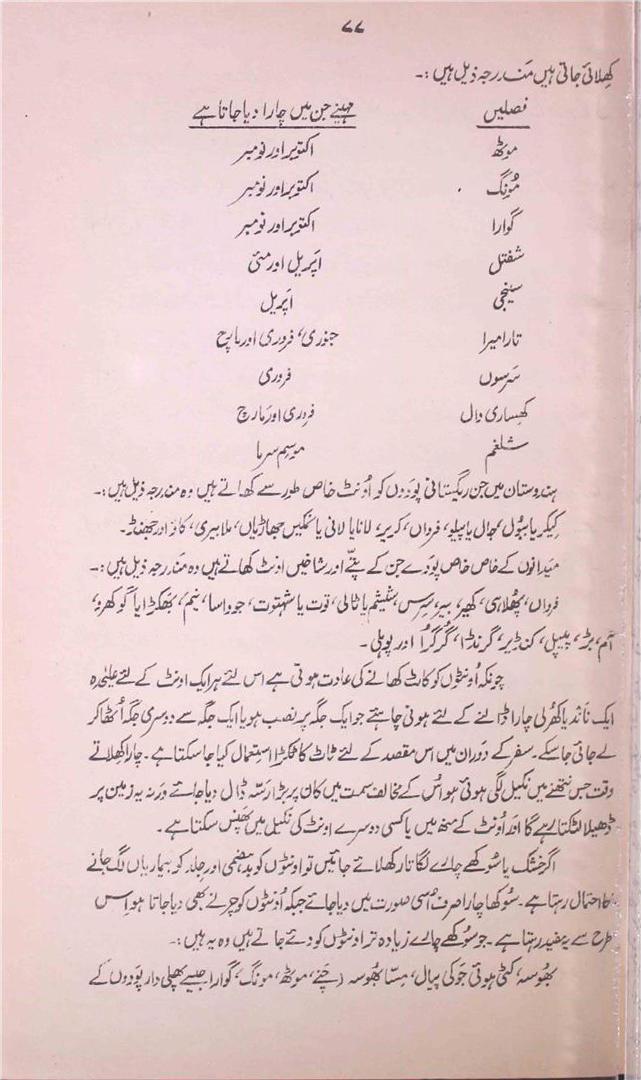 ۷۷
کھلائی جاتی ہیں مندرجہ ذیل ہیں :۔
فصلیں مہینے جن میں چارا دیا جاتا ہے
موٹھ اکتوبر اور نومبر
مُونگ اکتوبر اور نومبر
گوارا اکتوبر اور نومبر
شفتل اپریل اور مئی
سینجی اپریل
تارا میرا جنوری، فروری اور مارچ
سَرسوں فروری
کھِساری دال فروری اور مارچ
شلغم موسمِ سرما
ہندوستان میں جن ریگستانی پودوں کو اُونٹ خاص طور سے کھاتے ہیں وہ مندرجہ ذیل ہیں :۔
کیکر یا ببُول، جال یا پیلو، فرواں، کریر، لانا یا لانی یا نمکیں جھاڑیاں، ملا بیری، کانڑ اور جھنڈ۔
میدانوں کے خاص خاص پودے جن کے پتّے اور شاخیں اونٹ کھاتے ہیں وہ مندرجہ ذیل ہیں :۔
فرواں، پھُلاہی، کھیر، بیر، سِرس، شیشم یا ٹالی، توت یا شہتوت، جوواسا، نیم، بھکڑا یا گوکھرو،
آم، بڑ، پیپل، کنڈیر، گرنڈا، گرگرا اور پوہلی۔
چونکہ اُونٹوں کو کاٹ کھانے کی عادت ہوتی ہے اس لئے ہر ایک اونٹ کے لئے علیٰحدہ
ایک ناند یا کھُرلی چارا ڈالنے کے لئے ہونی چاہئے جو ایک جگہ پر نصب ہو یا ایک جگہ سے دوسری جگہ اُٹھا کر
لے جائی جا سکے۔ سفر کے دَوران میں اس مقصد کے لئے ٹاٹ کا ٹکڑا استعمال کیا جا سکتا ہے۔ چارا کھِلاتے
وقت جس نتھنے میں نکیل لگی ہوئی ہو اُس کے مخالف سمت میں کان پر بڑا رسّہ ڈال دیا جائے ورنہ یہ زمین پر
ڈھیلا لٹکتا رہے گا اور اُونٹ کے منھ میں یا کسی دوسرے اونٹ کی نکیل میں پھنس سکتا ہے۔
اگر خشک یا سُوکھے چارے لگاتار کھلائے جائیں تو اونٹوں کو بدہضمی اور جِلد کو بیماریاں لگ جانے
کا احتمال رہتا ہے۔ سُوکھا چارا صرف اُسی صورت میں دیا جائے جبکہ اُونٹوں کو چرنے بھی دیا جاتا ہو اِس
طرح سے یہ مفید رہتا ہے۔ جو سُوکھے چارے زیادہ تر اونٹوں کو دئے جاتے ہیں وہ یہ ہیں :۔
بھُوسہ، کٹی ہوئی جَو کی پیال، مِسّا بھُوسہ (چنے، موٹھ، مونگ، گوارا جیسے پھلی دار پودوں کے